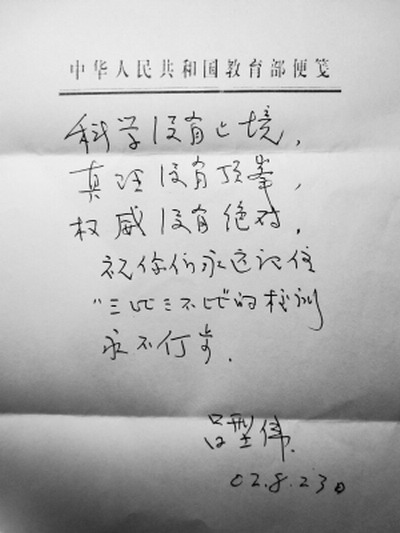 中华人民共和国教育部便笺
科学没有止境，
真理没有顶峯，
权威没有绝对，
祝你们永远记住
“三比三不比”的校训
永不停步．
吕型伟
02.8.23日